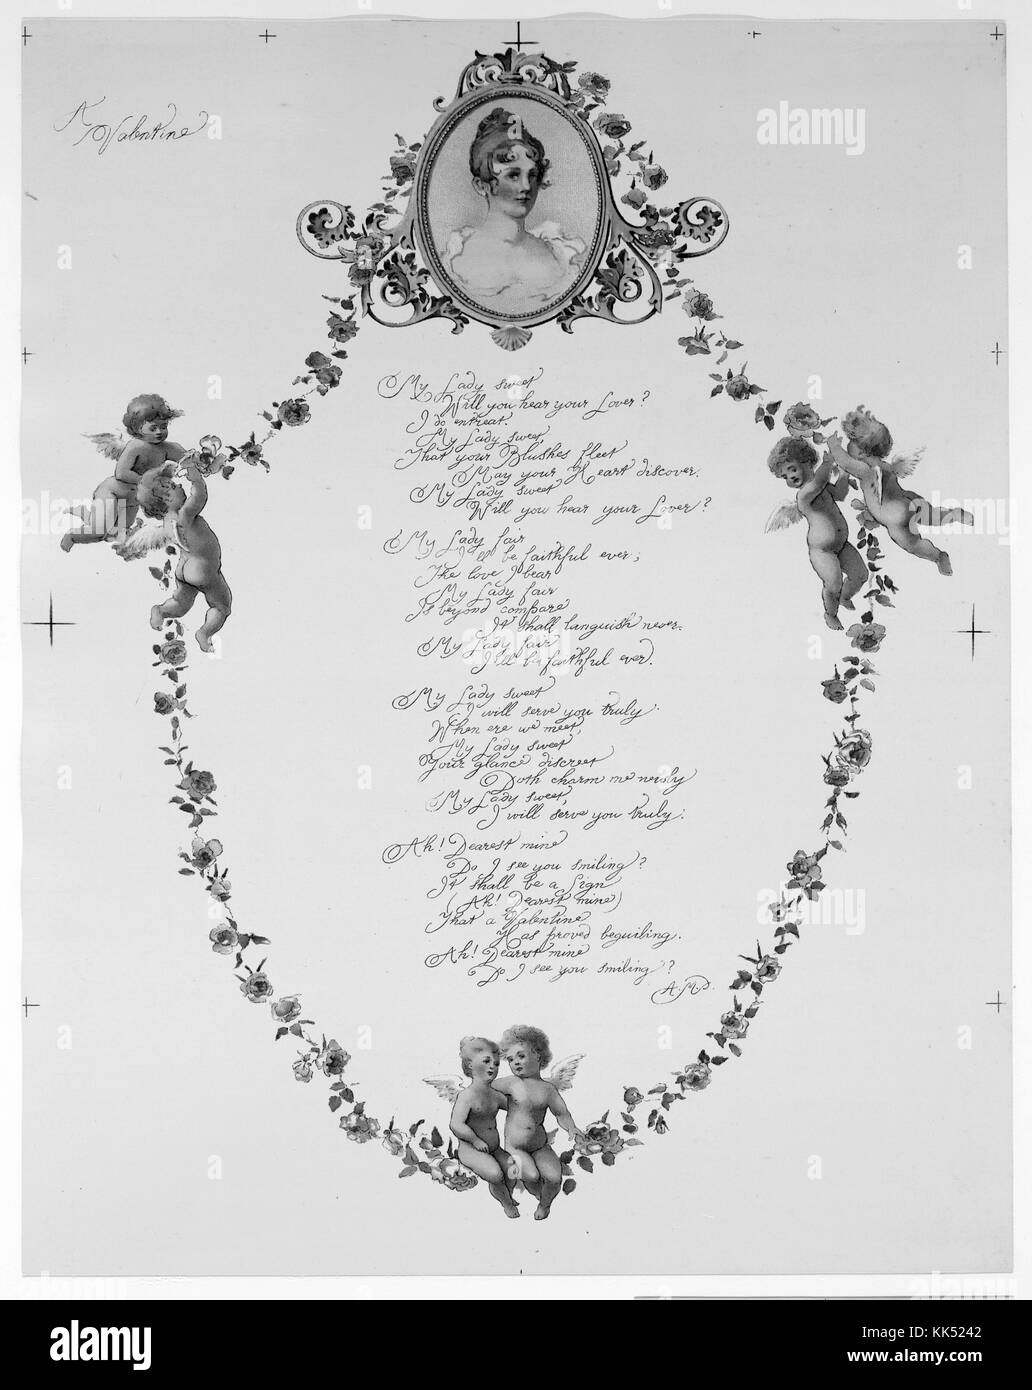 A Valentine
My Lady sweet
Will you hear your Lover?
I do entreat.
My Lady sweet
That your Blushes fleet
May your Heart discover.
My Lady sweet
Will you hear your Lover?
My Lady fair
I'll be faithful ever;
The love I bear
My Lady fair
Is beyond compare
It shall languish never.
My Lady fair
I'll be faithful ever.
My Lady sweet
I will serve you truly.
When ere we meet,
My Lady sweet
Your glance discreet
Doth charm me newly
My Lady sweet,
I will serve you truly.
Ah! Dearest mine
Do I see you smiling?
It shall be a Sign
(Ah! Dearest mine)
That a Valentine
Has proved beguiling.
Ah! Dearest mine
Do I see you smiling?
alamy
alamy
Image ID: KK5242
www.alamy.com